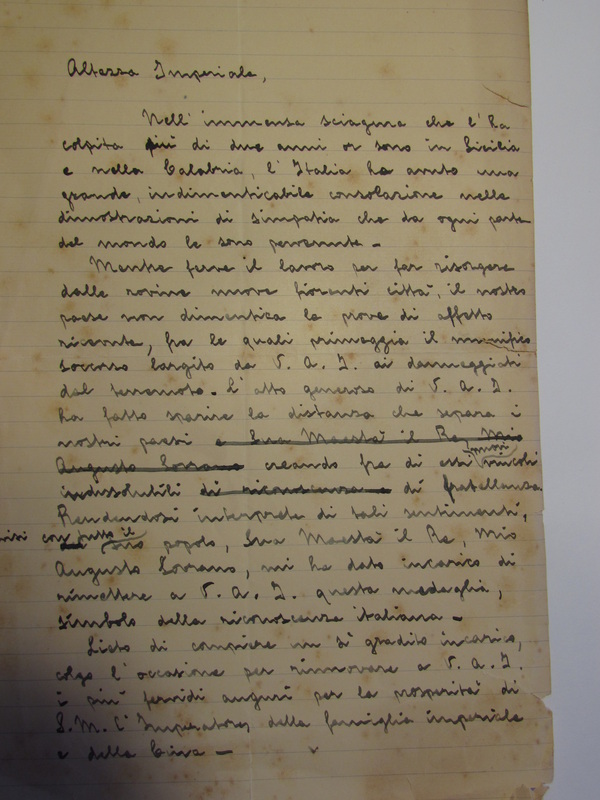 Altezza Imperiale,
Nell' immensa sciagura che l'ha
colpita più di due anni or sono in Sicilia
e nella Calabria, l'Italia ha avuto una
grande, indimenticabile consolazione nelle
dimostrazioni di simpatia che da ogni parte
del mondo le sono pervenute –
Mentre ferve il lavoro per far risorgere
dalle rovine nuove fiorenti città, il nostro
paese non dimentica le prove di affetto
ricevute, fra le quali primeggia il munifico
soccorso largito da V. A. I. ai danneggiati
dal terremoto. L'atto generoso di V. A. I.
ha fatto sparire la distanza che separa i
nostri paesi e Sua Maestà il Re, Mio
Augusto Sovrano creando fra di essi nuovi vincoli
indissolubili di riconoscenza e di fratellanza
Rendendosi interprete di tali sentimenti,
con tutto il suo popolo, Sua Maestà il Re, mio
Augusto Sovrano, mi ha dato incarico di
rimettere a V. A. I. questa medaglia,
simbolo della riconoscenza italiana –
Lieto di compiere un sì gradito incarico,
colgo l'occasione per rinnovare a V. A. I.
i più fervidi auguri per la prosperità di
S. M. l'Imperatore, della famiglia imperiale
e della Cina –